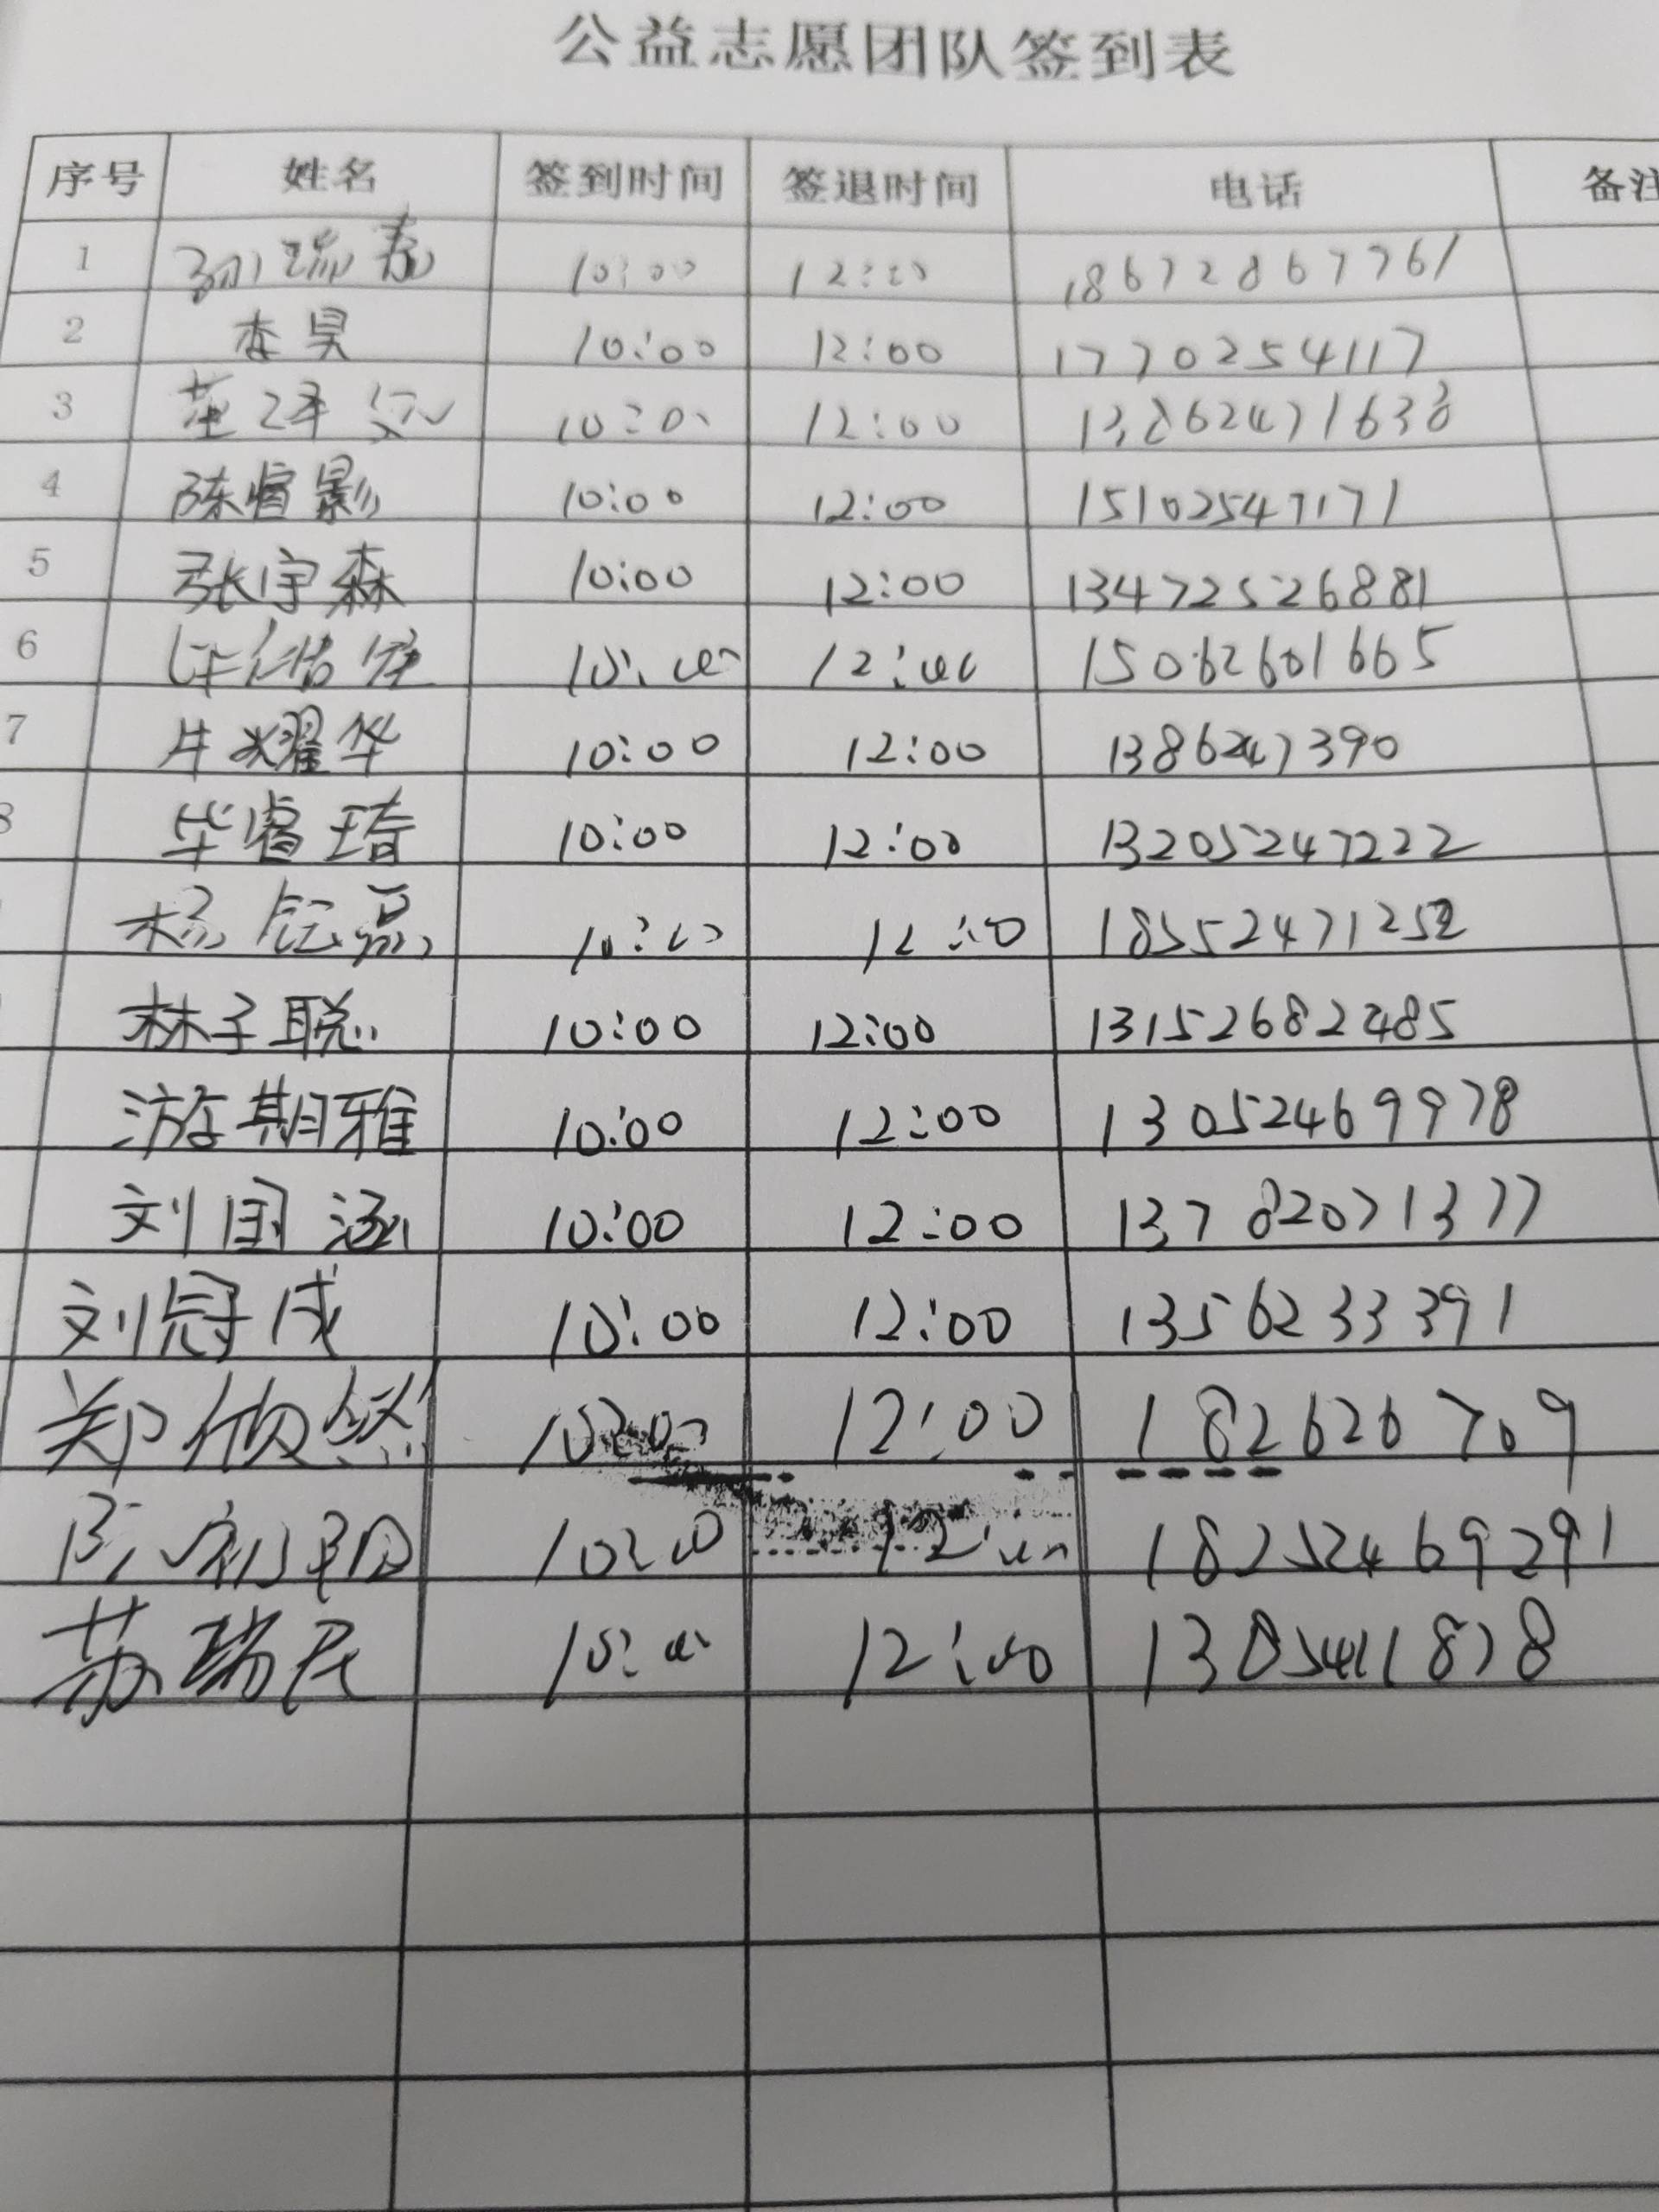 公益志愿团队签到表
序号 姓名 签到时间 签退时间 电话 备注
1 瑞 10:00 12:00 18672867761
2 李昊 10:00 12:00 1770254117
3 董泽 10:00 12:00 13862471638
4 陈睿影 10:00 12:00 15102547171
5 张宇森 10:00 12:00 13472526881
6 10:00 12:00 15062601665
7 牛耀华 10:00 12:00 1386247390
8 毕睿琦 10:00 12:00 13205247222
杨钰磊 10:00 12:00
林子聪 10:00 12:00 13152682485
游期雅 10:00 12:00 13052469978
刘国涵 10:00 12:00 13782071377
刘冠成 10:00 12:00 1356233391
郑欣然 10:00 12:00 182626709
10:00 12:00 18252469291
苏瑞民 10:00 12:00